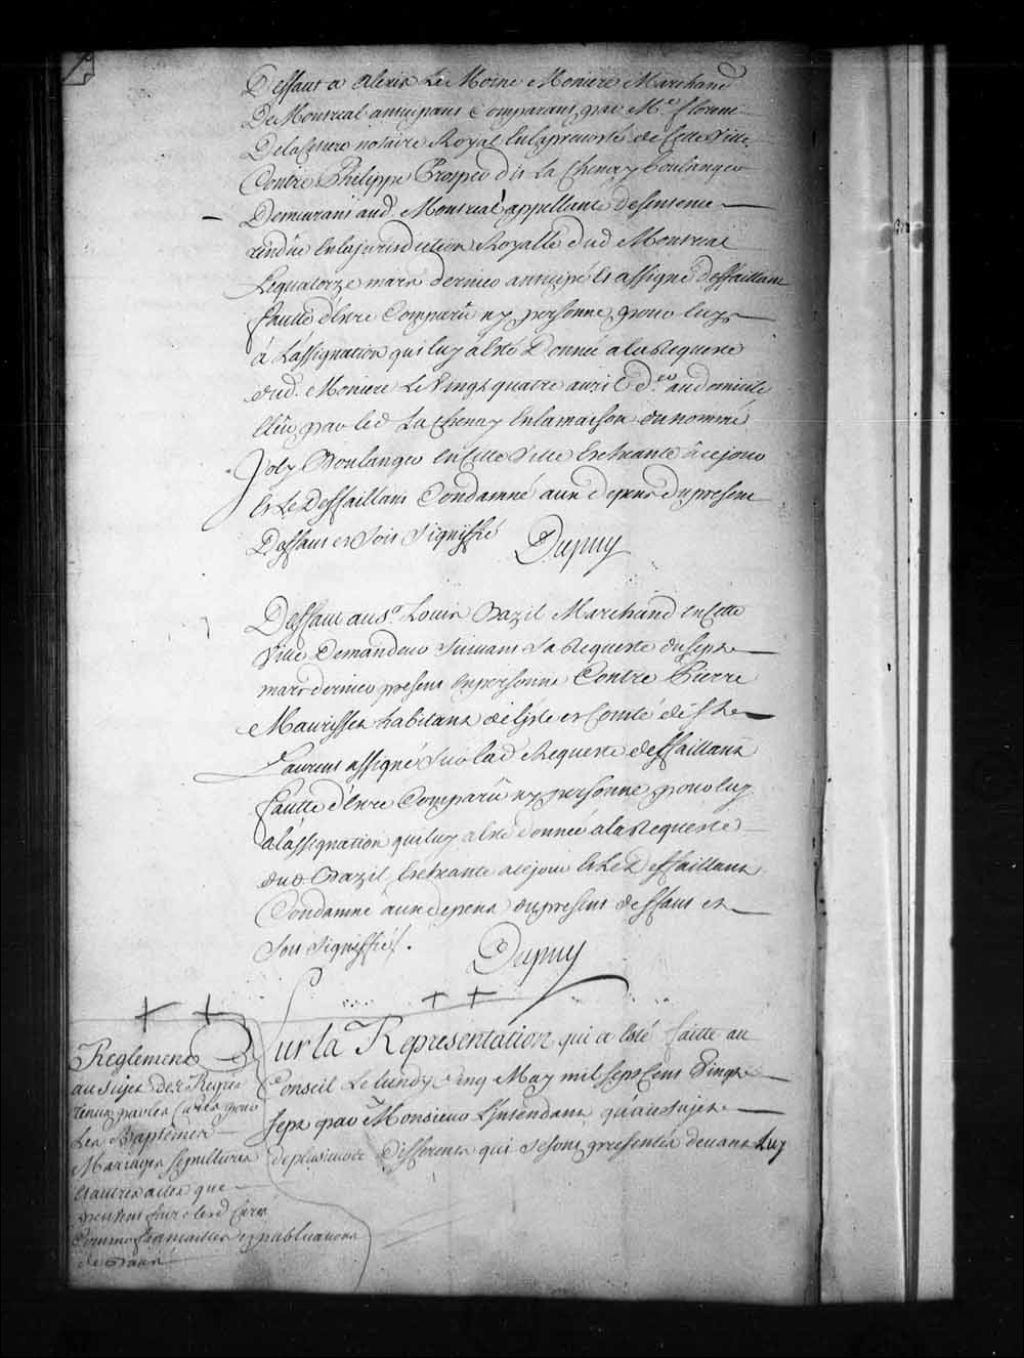 Deffaut a Alexis Le Moine Moniere Marchand
De Montreal anticipant Comparant par Me. Florent
Delacetiere notaire Royal En la prevosté de Cette Ville
Contre Philippe Prospeo dit La Chenay boulangeo
Demeurant aud. Montreal appellant de sentence
rendue En la jurisdiction Royalle dud Montreal
Le quatorze mars dernier anticipé Et assigné deffaillant
fautte d'Etre Comparû ny personne pour luy
à L'assignation qui luy a Eté Donnée a la Requeste
dud. Moniere Le Vingt quatre avril d.er au domicile
Elû par led La Chenay En la maison du nommé
Joly Boulanger En Cette Ville Escheante à ce jour
Et Le Deffaillant Condamné aux depens du present
Deffaut et Soit Signiffié
Dupuy
Deffaut au Sr. Louis Bazil Marchand En Cette
Ville Demandeur Suivant Sa Requeste du sept
mars dernier present En personne Contre Pierre
Maurisset habitant de lisle et Comté de St
Laurent assigné Sur lad Requeste deffaillant
fautte d'Etre Comparû ny personne pour luy
a l'assignation qui luy a Eté donnée a la Requeste
dud Bazil, Escheante a ce jour Et Le Deffaillant
Condamné aux depens du present deffaut et
Soit Signiffié.
Dupuy
Sur la Representation qui a Esté faitte au
Conseil Le lundy Cinq May mil Sept Cent Vingt
Sept par Monsieur L'Intendant qu'au Sujet
de plusieurs Differents qui se sont presentés devant Luy
Reglement
au Sujet Des Regîes
tenus par les Curés pour
Les Baptêmes
Mariages Sepultures
Et autres actes que
peuvent faire lesd Curés
Comme fiançailles et publications
de bans